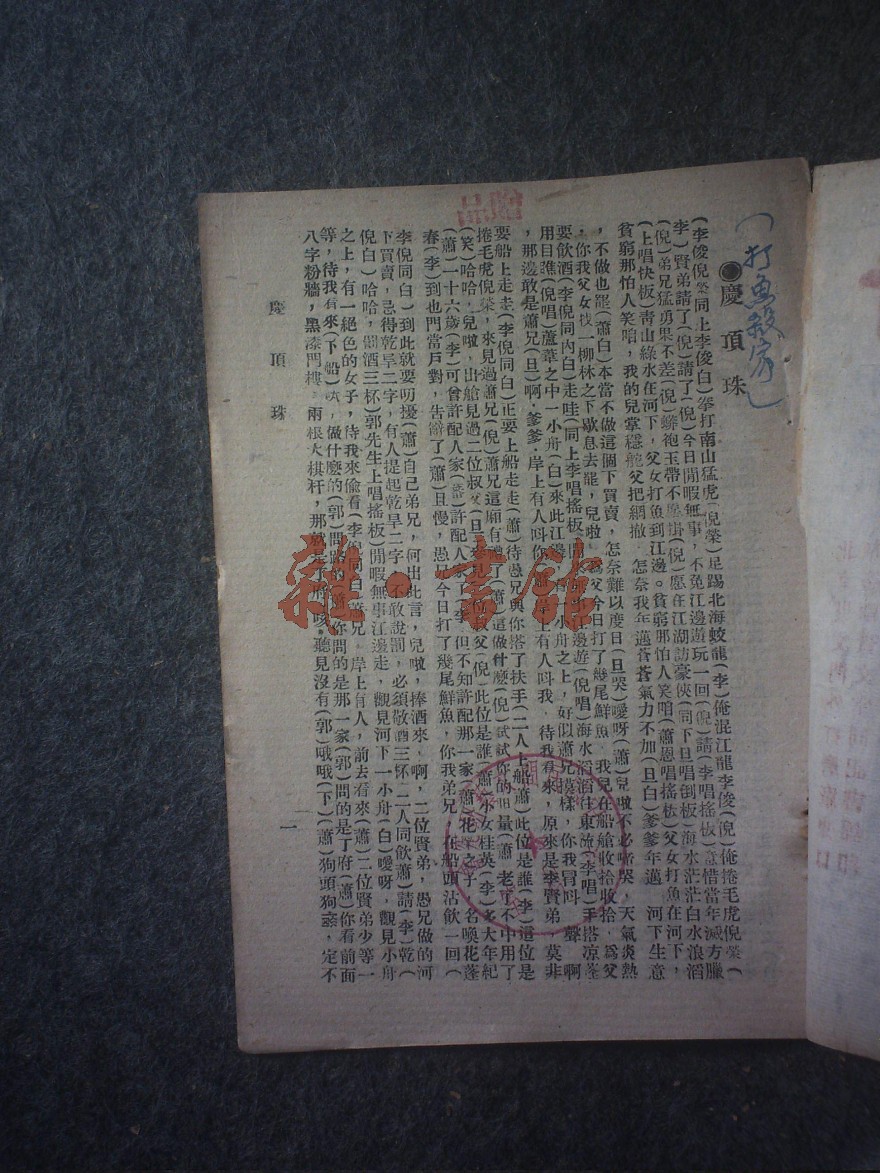 （打魚殺家）
●慶頂珠
(李俊倪榮同上李俊白)拳打南山猛虎(倪榮)足踢北海蛟龍(李)俺混江龍李俊(倪)俺捲毛虎倪榮(
李)賢弟請了(倪)請了(倪)今日閒暇無事，不免江邊遊玩一回(倪)請(李唱搖板)意惜當年滅方臘
(倪)弟兄猛勇果不差(倪)蟒袍玉帶不(倪)愿在江湖訪豪俠(同下旦唱倒板)海水茫茫白水浪滔
(上唱快板)靑山綠水在河下，父女打魚到江邊。貧窮那怕人笑咱(蕭恩唱搖板)父女打魚在河下，
貧窮那怕人笑咱，我的兒掌穩舵父把網撒，怎奈我年邁蒼蒼氣力不加(旦白)爹爹年邁，河下生意
，不做也罷(蕭白)本當不做這個下買賣，怎奈難以度日(旦哭)噯呀(蕭)兒啦不必啼哭，天氣炎熱
，你我父女找一柳林之下歇息去罷，兒啦，爲父今日打了幾尾鮮魚，我兒在船艙收拾收拾，爲父
要飲酒(李倪同內白)走哇(同上李唱搖板)江邊遊(倪唱)海水滔滔往東流(李唱)手搭凉蓬
用目瞧(倪唱)蘆葦之中一小舟(白)來此江小舟之上，好似蕭兄模樣，你我冒叫一聲，啊
，那邊敢是蕭兄(旦)啊，爹爹，岸上有人叫你岸上有人叫我，待我看來，原來是李賢弟，莫非
要船上走走(李倪同白)正要上船走走(蕭)待愚兄與你搭了扶手(二人上船蕭)此位是誰(李)這位是
捲毛虎倪榮，來見過蕭兄(倪)蕭兄這廂有禮了(蕭)這做什麽(倪)試試你的力量(蕭)老了不中用了
(笑)哈哈，兒啦，出艙見過二位叔父(旦)叔父(倪)此位是誰(蕭)小女桂英(李)多大年紀
(蕭)一十六歲(李)可曾許配人家(蕭)許配人家了(李)但不知許配那一家(蕭)花榮之子，名喚花蓬
春(李)到也門當戶對，告辭了(蕭)且慢，愚兄今日打了幾尾鮮魚，你我弟兄，在船頭沽飲一回(
李倪同白)到此就要叨擾(蕭)自己弟兄，何出此言，兒啦，捧酒來，啊，二位賢弟，愚兄做的河
下買賣，忌得乾旱二字，有人提起乾旱二字，不敢說罰，必須敬酒三杯二人同飲蕭)請(李)乾(
倪白)哈哈，罰酒三杯)郭先生上唱搖板)閒暇無事江邊走，觀見河下一小舟(白)噯呀，觀見小舟
之上，有一絕色的女子，待我來偷看(李倪同白)蕭兄，岸上有人，前去看來(蕭)二位賢弟少等一
等，待我看來(下船)做什麽的(郭)問路你問的是那一家(郭)問的是丁府(蕭)你看前面
八字粉牆，黑漆門樓，兩根大棋杆，那丁府，咳，聽見沒有(郭)哦哦(下)(蕭)狗頭狗，定不
慶頂珠
一
雜·書館